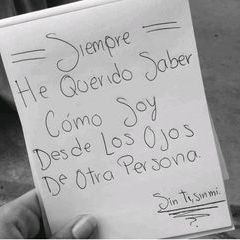 Siempre
He Querido Saber
Cómo Soy
Desde Los Ojos
De Otra Persona.
Sin ti, sin mi.
?